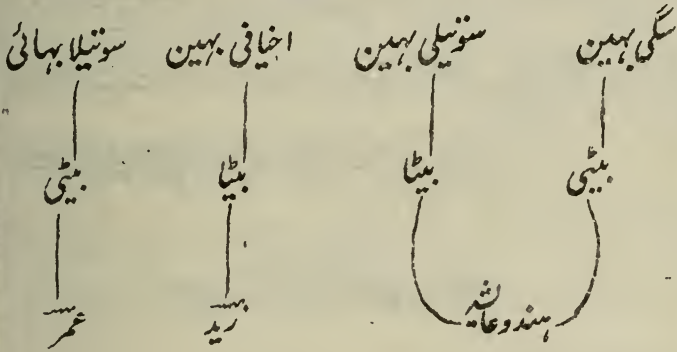 سگی بہین سوتیلی بہین اخیافی بہین سوتیلا بہائی
بیٹی بیٹا بیٹا بیٹی
ہندوعائشہ زید عمر